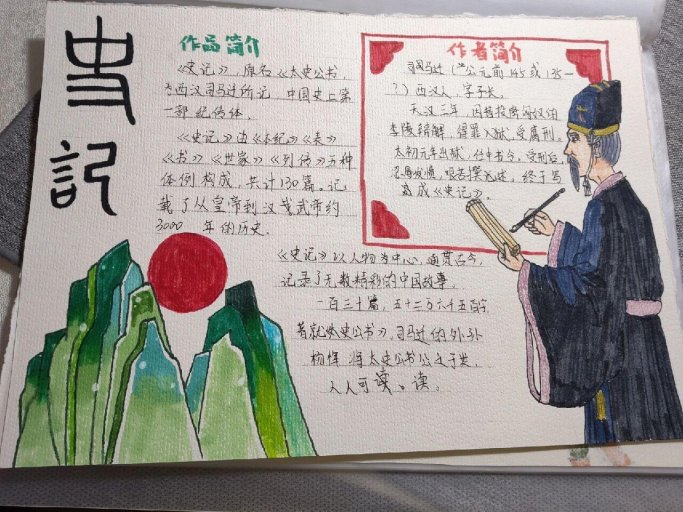 史記
作品简介
《史记》,原名《太史公书,
为西汉司马迁所记 中国史上第
一部纪传体.
《史记》由《本纪》《表》
《书》《世家》《列传》五种
体例构成,共计130篇.记
载了从皇帝到汉武帝约
3000 年的历史.
作者简介
司马迁(公元前145或135-
?)西汉人,字子长,
天汉三年,因替投降匈奴的
李陵辩解,得罪入狱,受腐刑,
太初元年出狱,任中书令,受刑后,
发愤,艰苦撰述,终于写
成《史记》.
《史记》以人物为中心,通贯古今,
记录了无数精彩的中国故事.
一百三十篇,五十二万六千五百字,
著就《太史公书》,司马迁的外孙
杨恽,将太史公书公之于世,
人人可读、读。